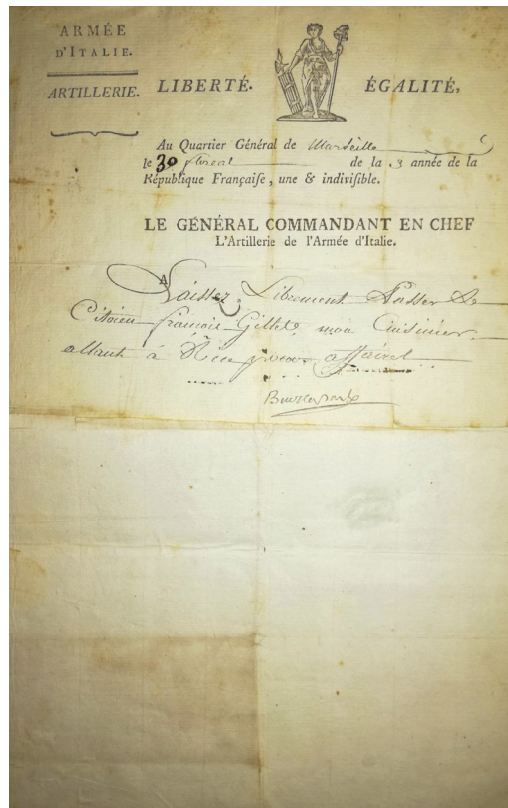 ARMÉE
D'ITALIE.
ARTILLERIE.
LIBERTÉ. ÉGALITÉ,
Au Quartier Général de Marseille
le 30 floreal de la 3 année de la
République Françaiſe, une & indiviſible.
LE GÉNÉRAL COMMANDANT EN CHEF
L'Artillerie de l'Armée d'Italie.
A
Laissez Librement Passer Le
Citoien françois Gillet mon Cuisinier
allant à Nice pour affaires
Buonaparte